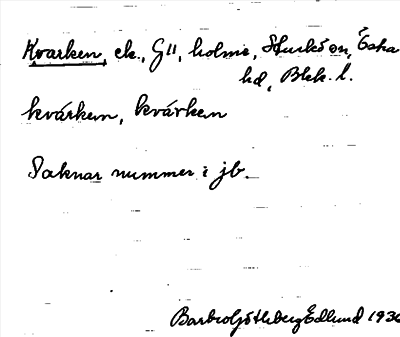 Kvarken, ek., G11, holme, Sturkö sn, Ö:ska
hd, Blek. l.
kvárken, kvárken
Saknar nummer i jb.
Barbro Götlberg Edlund 1936